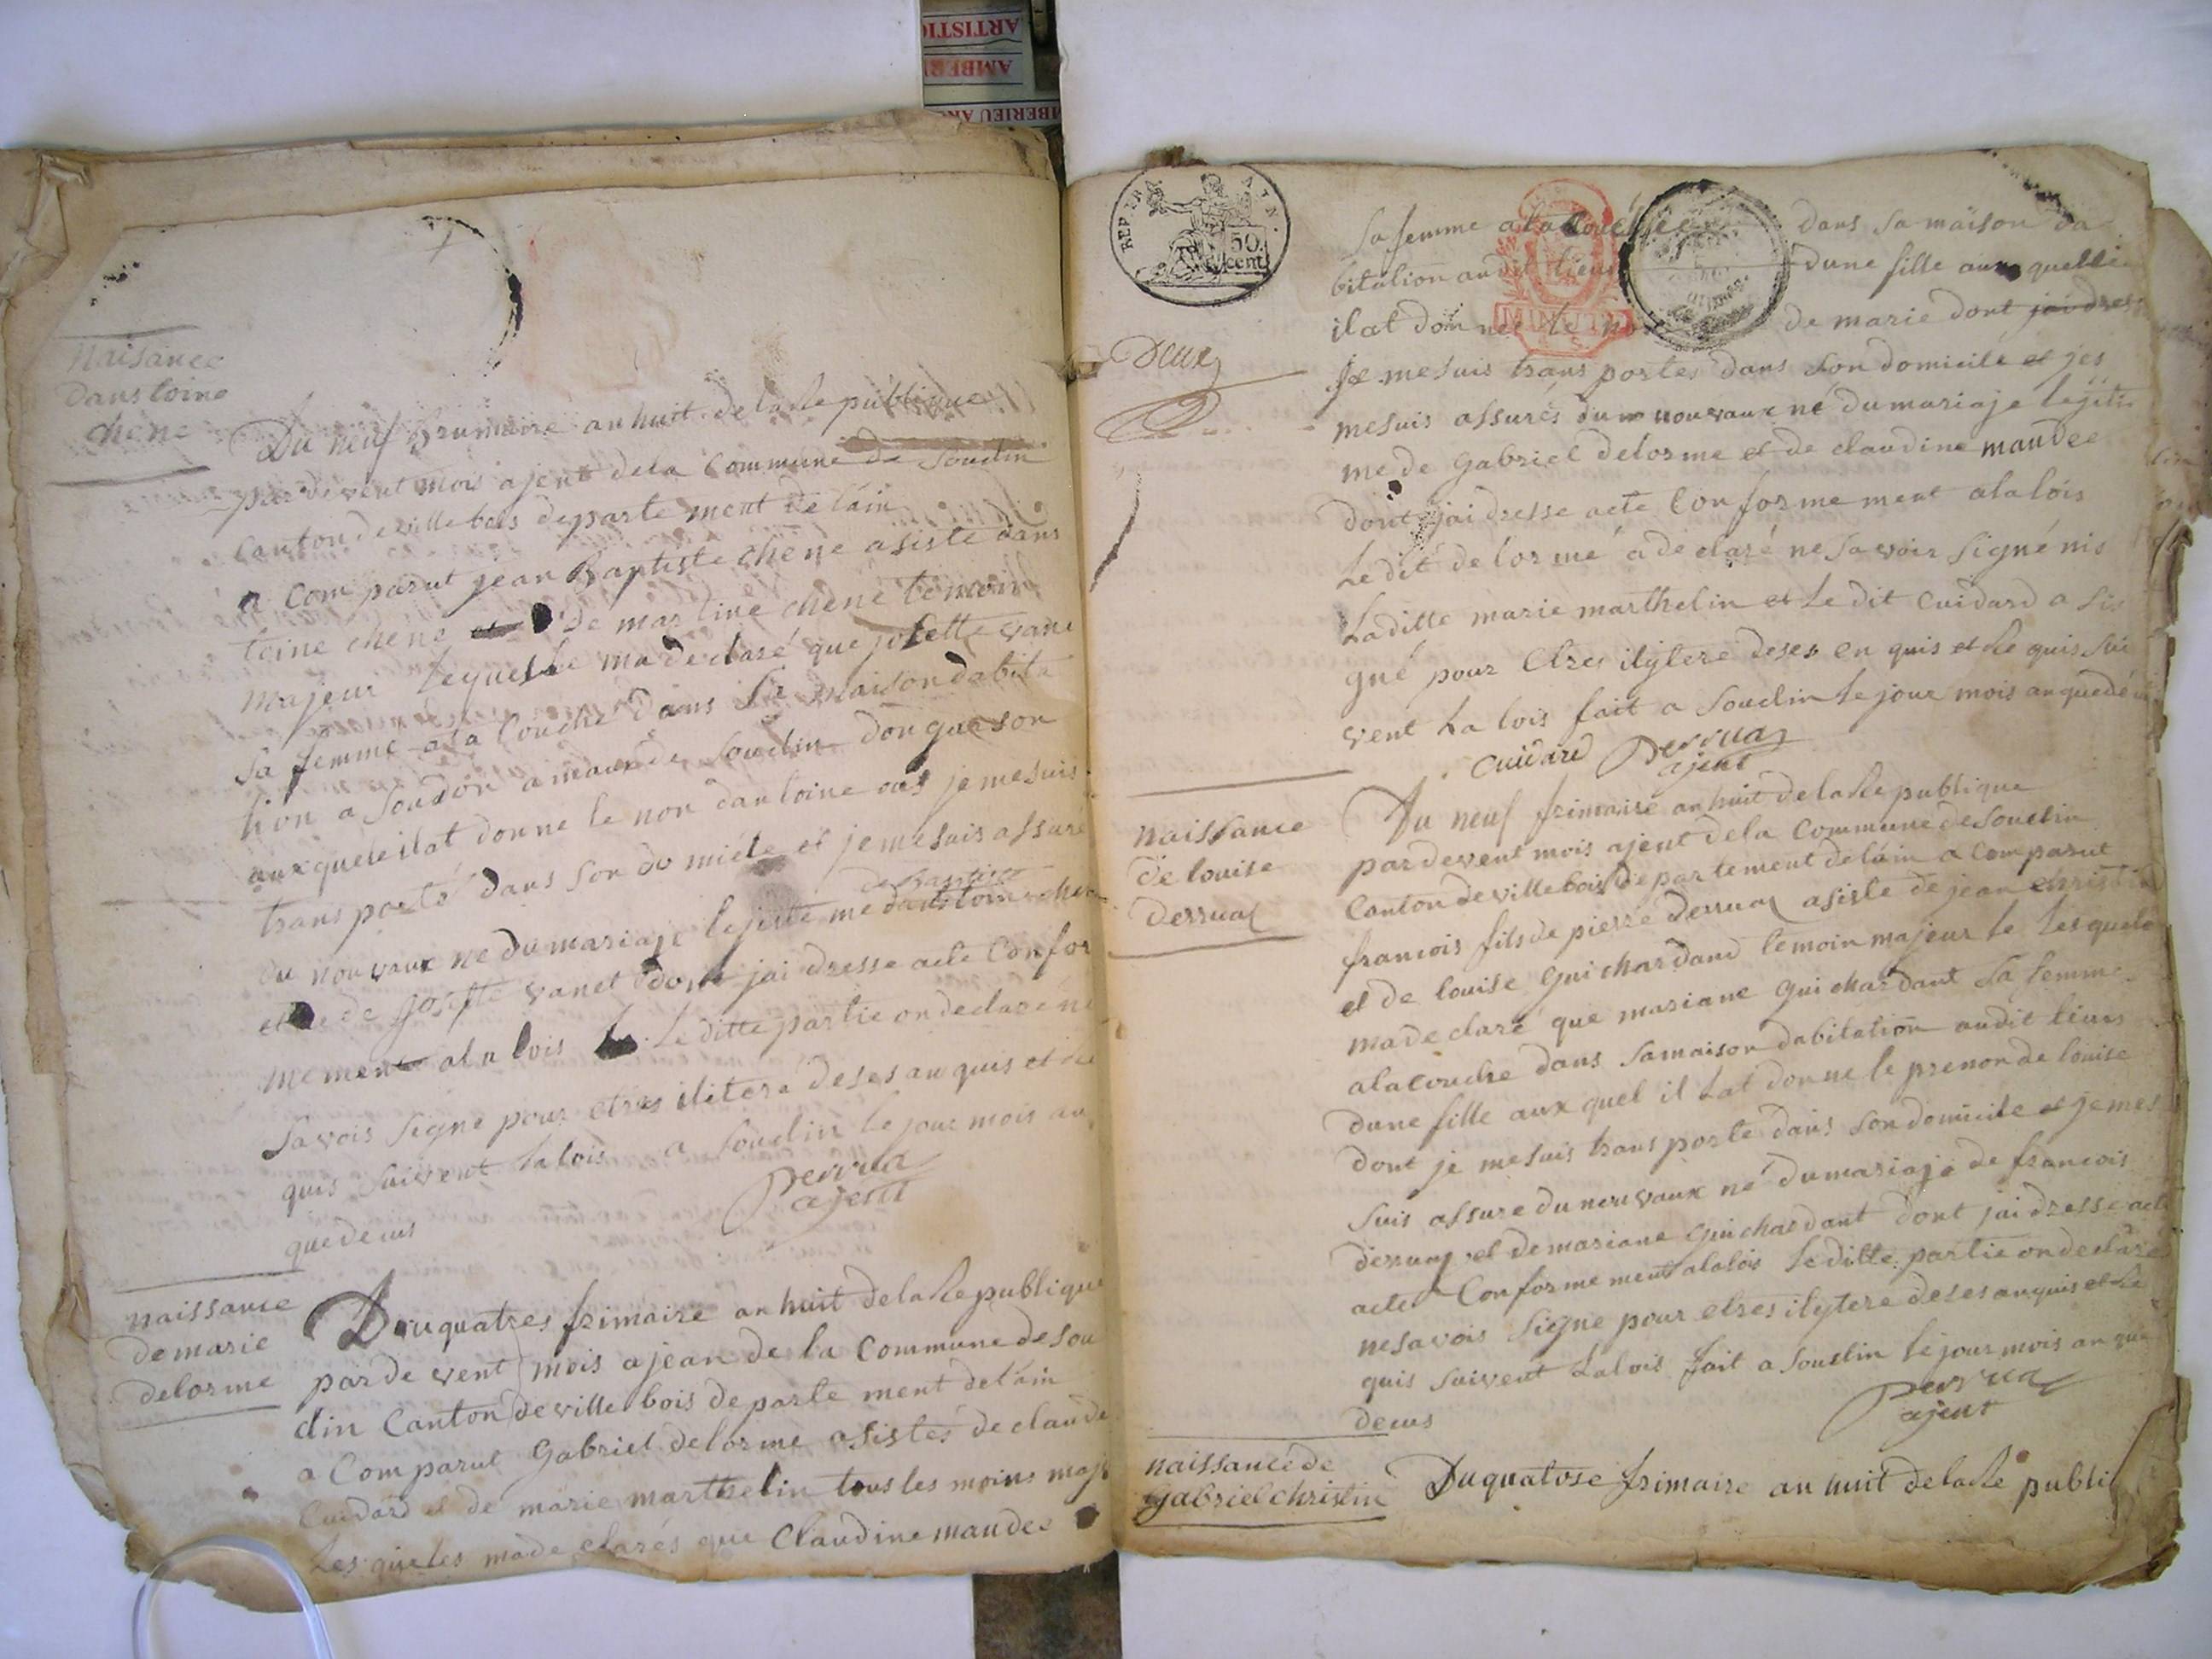 ARTISTIC
AMBER
MBERIEU AR
Naisance
dans toine
chene
Du neuf Brumaire an huit de la Re publique
par de vent mois ajent dela Commune de Soudin
Canton de ville bois departe ment de lain
a Com parut jean Baptiste chene asiste dans
toine chene de martine chene temoin
majeur lequel le ma declaré que josette vane
Sa femme ala Couche dans Sa maison dabita
tion a Soudon ameaux de Souclin don garson
aux quele ilat donne le non dantoine ous je me suis
trans porté dans Son do micile et je me suis assuré
du nou vaux ne du mariaje lejitte me dantoine chene
de Baptiste
et de josette vanet dont jai dresse acte Confor
mement ala lois le ditte partie on declaré ne
Savois Signe pour etres ilitere deses an quis et de
quis Suivent la lois a Souclin le jour mois an
que deius
Perrua
ajent
naissance
de marie
delorme
Du quatres frimaire an huit de la Re publique
par de vent mois ajean de la Commune de Sou
clin Canton de ville bois de parte ment de lain
a Com parut Gabriel delorme asistés de claude
Cuidard et de marie marthelin tous les moins maje
Les queles ma de clarés que Claudine maudee
REP. FRA
50
cent
AIN
MINUTE
Deux
Sa femme ala Couchee dans Sa maison da
bitation audit lieus dune fille aux quelle
ilat donnee le de marie dont jai dres
Je me suis trans portes dans Son domicile et jes
me suis assurés du nouvaux né du mariaje lejiti
me de Gabriel delorme et de claudine maudee
dont jai dresse acte Con forme ment ala lois
Le dit delorme a de claré ne Savoir Signé nis
La ditte marie marthelin et Le dit Cuidard a Sis
gné pour Etres ilytere deses en quis et Le quis Sui
vent La lois fait a Souclin Le jour mois an que dé
Cuidard Perrua
ajent
naissance
de louise
derruaz
Du neuf frimaire an huit dela Re publique
par devent mois ajent dela Commune de Souclin
Canton de ville bois de partement de lain a Com parut
francois fils de pierre derruaz asiste de jean christin
et de louise Guichardand temoin majeur le Les quele
ma de claré que mariane Guichardant Sa femme
ala Couche dans Sa maison dabitation audit lieus
dune fille aux quel il Lat donne le prenon de louise
dont je me suis trans porte dans Son domicile et je mes
Suis assure du neuvaux né du mariaje de francois
derruaz et de mariane Guichardant dont jai dresse acte
acte Con forme ment ala lois Le ditte partie on declaré
ne Savois Signe pour etres ilytere deses an quis et Le
quis Suivent La lois fait a Souclin Le jour mois an que
deius
Perrua
ajent
naissance de
Gabriel christin
Du quatose frimaire an huit de la Re publi